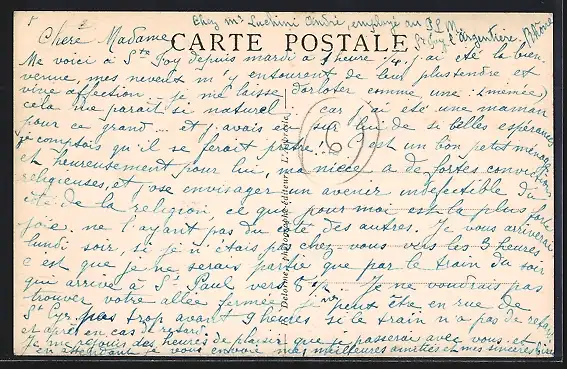 Chez Mr Luchini André, employé au P.L.M.
Ste Foy l'Argentière Rhône
Chère Madame
CARTE POSTALE
Me voici à Ste Foy depuis mardi à 1 heure 1/4. j'ai été la bien
venue, mes neveux m'y entourent de leur plus tendre et
vive affection. Je me laisse dorloter comme une : (mémée)
cela me parait si naturel car j'ai été une maman
pour ce grand... et j'avais eu sur lui de si belles espérances
je comptais qu'il se ferait prêtre. C'est un bon petit ménage
et heureusement pour lui, ma nièce a de fortes convictions
religieuses, et j'ose envisager un avenir indéfectible du
côté de la religion, ce qui pour moi est la plus forte
joie ne l'ayant pas du côté des autres. Je vous arriverai
lundi soir, si je n'étais pas chez vous vers les 3 heures
c'est que je ne serais partie que par le train du soir
qui arrive à St Paul vers 8h. Je ne voudrais pas
trouver votre allée fermée, j'irai peut être en rue de
St Cyr pas trop avant 9 heures si le train n'a pas de retard
et après en cas de retard.
Je me réjouis des heures de plaisir que je passerai avec vous et
en attendant je vous envoie mes meilleures amitiés et mes sincères bises
Delorme, photographe-éditeur, L'Argentière
6